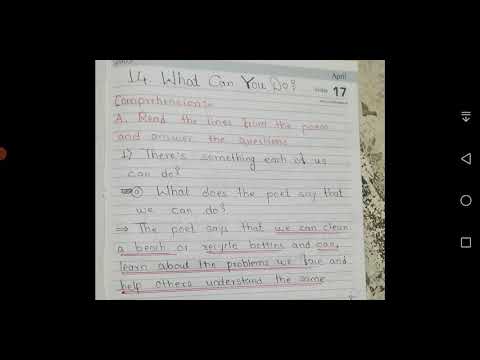 April
17
14. What Can You Do?
Comprehension:-
A. Read the lines from the poem
and answer the questions
1) There's something each of us
can do?
a What does the poet say that
we can do?
⇒ The poet says that we can clean
a beach or recycle bottles and can,
learn about the problems we face and
help others understand the same